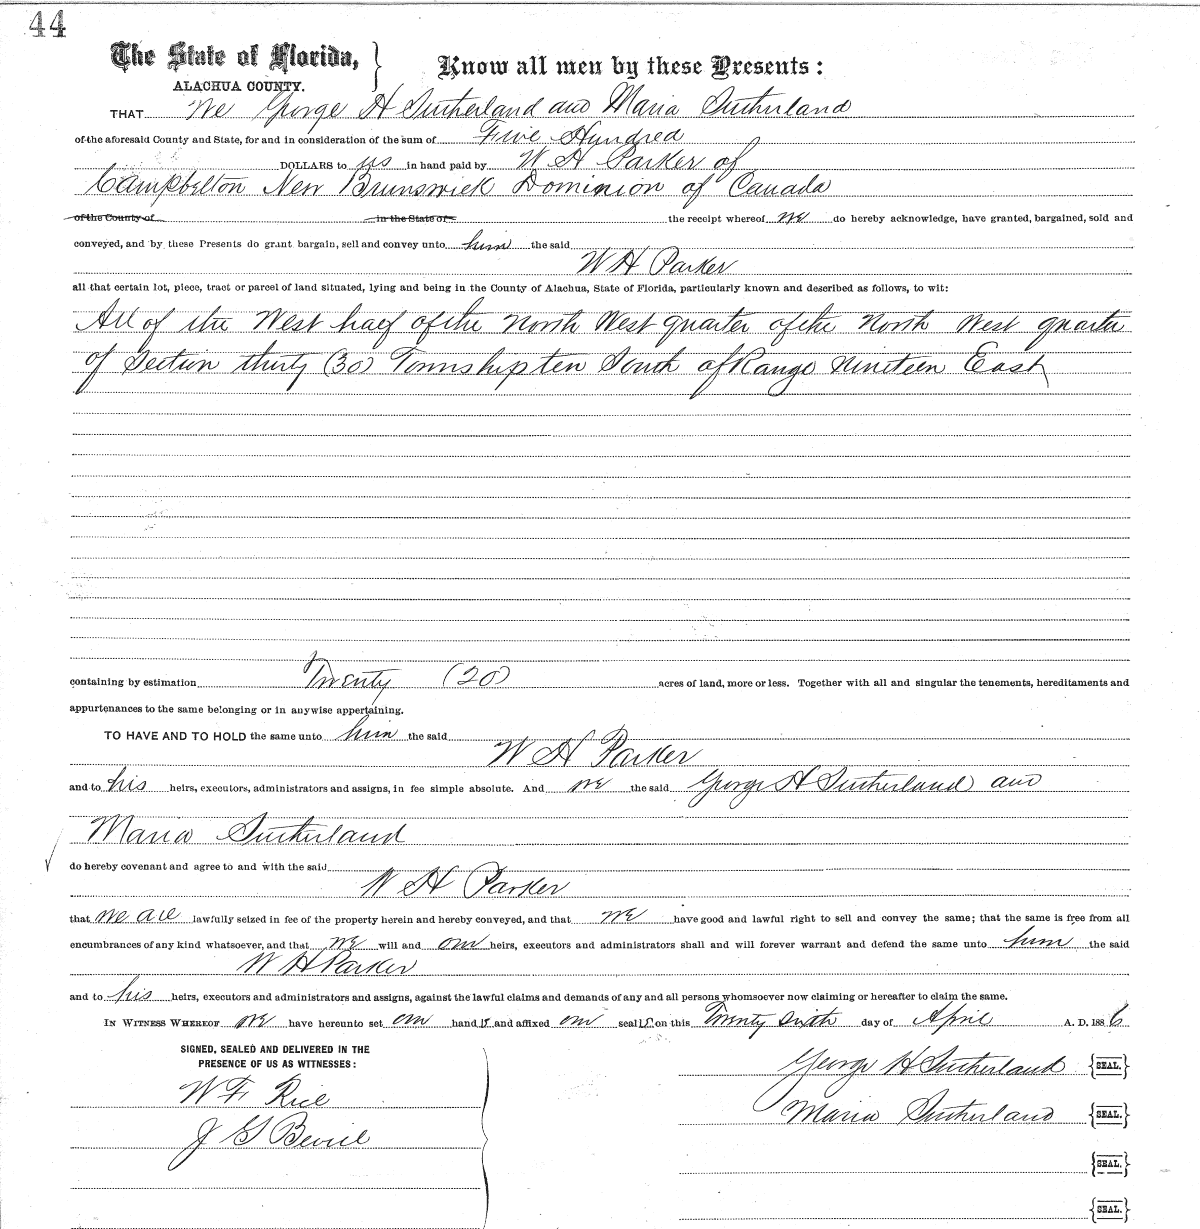 44
The State of Florida,
ALACHUA COUNTY.
Know all men by these Presents:
THAT We George H Sutherland and Maria Sutherland
of the aforesaid County and State, for and in consideration of the sum of Five Hundred
DOLLARS to us in hand paid by W H Parker of
Campbelton New Brunswick Dominion of Canada
of the County of in the State of the receipt whereof we do hereby acknowledge, have granted, bargained, sold and
conveyed, and by these Presents do grant bargain, sell and convey unto him the said
W H Parker
all that certain lot, piece, tract or parcel of land situated, lying and being in the County of Alachua, State of Florida, particularly known and described as follows, to wit:
All of the West half of the North West quarter of the North West quarter
of Section thirty (30) Township ten South of Range nineteen East
containing by estimation Twenty (20) acres of land, more or less. Together with all and singular the tenements, hereditaments and
appurtenances to the same belonging or in anywise appertaining.
TO HAVE AND TO HOLD the same unto him the said
W H Parker
and to his heirs, executors, administrators and assigns, in fee simple absolute. And we the said George H Sutherland and
Maria Sutherland
do hereby covenant and agree to and with the said
W H Parker
that we are lawfully seized in fee of the property herein and hereby conveyed, and that we have good and lawful right to sell and convey the same; that the same is free from all
encumbrances of any kind whatsoever, and that we will and our heirs, executors and administrators shall and will forever warrant and defend the same unto him the said
W H Parker
and to his heirs, executors and administrators and assigns, against the lawful claims and demands of any and all persons whomsoever now claiming or hereafter to claim the same.
IN WITNESS WHEREOF we have hereunto set our hand s and affixed our seal s on this Twenty sixth day of April A. D. 1886
SIGNED, SEALED AND DELIVERED IN THE
PRESENCE OF US AS WITNESSES:
George H Sutherland SEAL.
W F Rice
Maria Sutherland SEAL.
J G Bevill
SEAL.
SEAL.